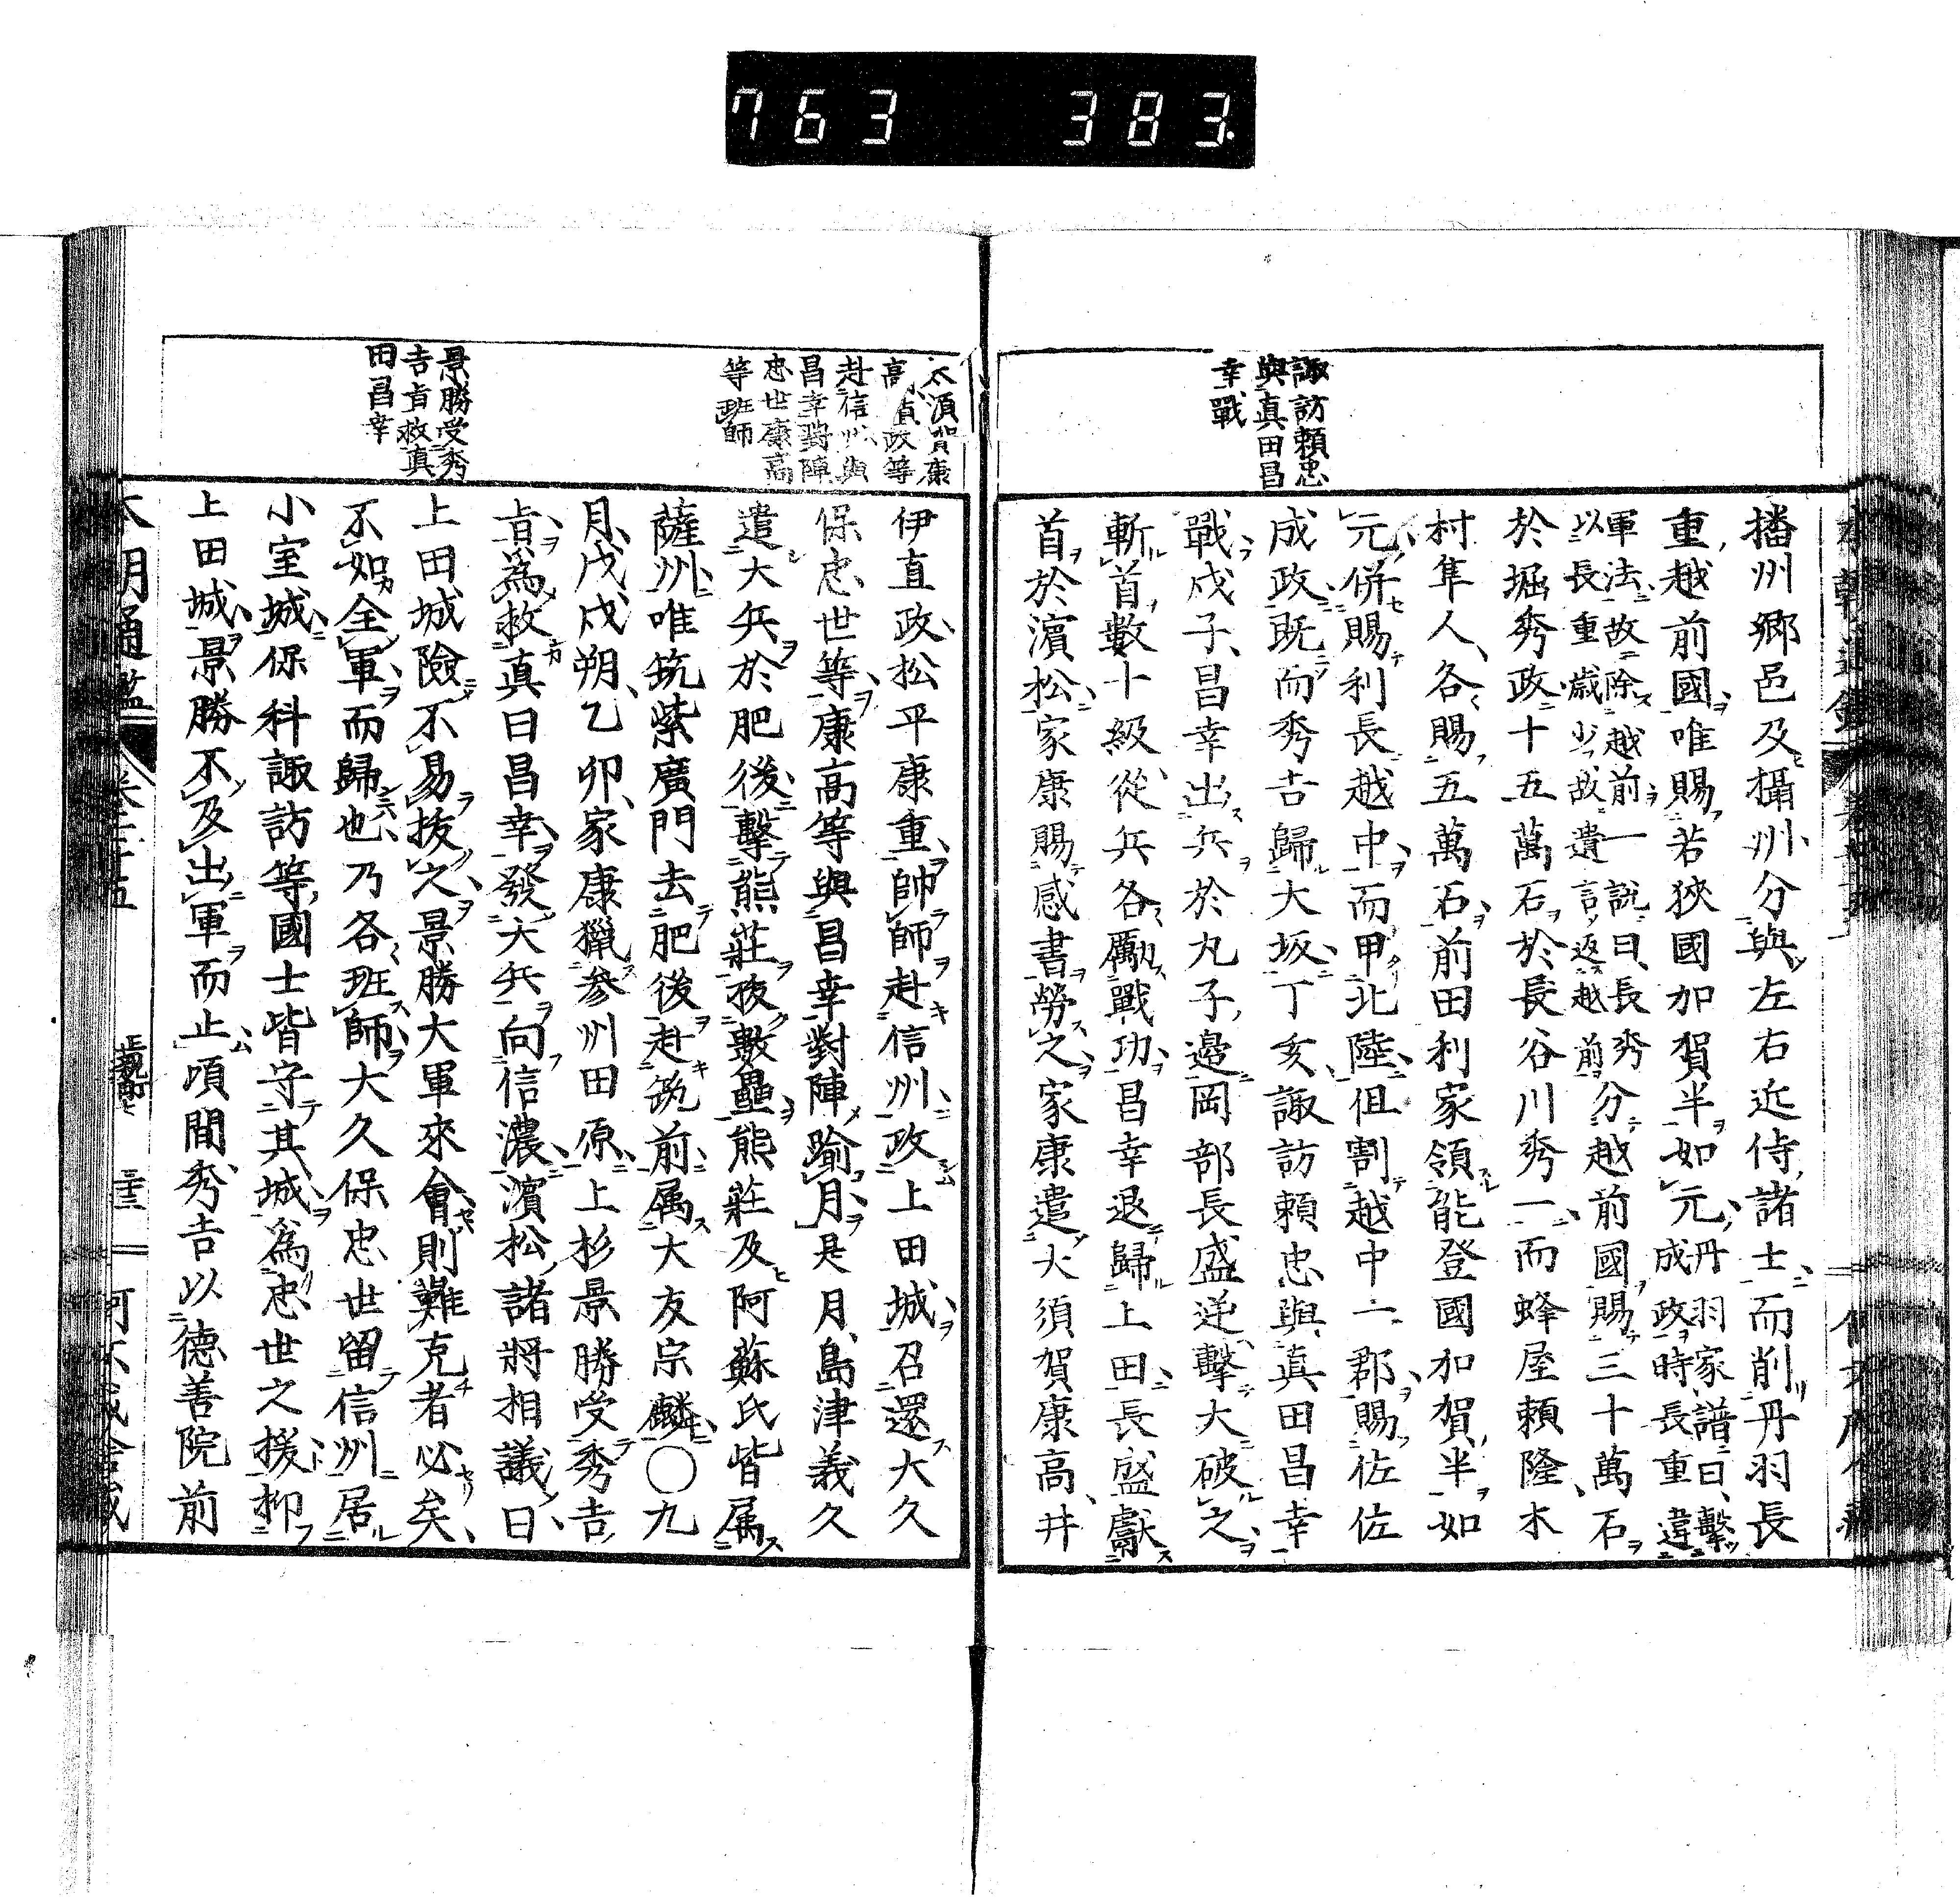 763 383
諏訪頼忠
與真田昌
幸戰
播州郷邑及攝州分與左右近侍諸士而削丹羽長
重越前國唯賜若狹國加賀半如元丹羽家譜曰擊
成政時長重違
軍法故除越前一説曰長秀分越前國賜三十萬石
以長重歳少故遺言返越前
於堀秀政十五萬石於長谷川秀一而蜂屋頼隆木
村隼人各賜五萬石前田利家領能登國加賀半如
元併賜利長越中而甲北陸但割越中一郡賜佐佐
成政既而秀吉歸大坂丁亥諏訪頼忠與真田昌幸
戰戊子昌幸出兵於丸子邊岡部長盛逆擊大破之
斬首數十級從兵各勵戰功昌幸退歸上田長盛獻
首於濵松家康賜感書勞之家康遣大須賀康高井
大須賀康
高直政等
赴信州與
昌幸對陣
忠世康高
等班師
景勝受秀
吉旨救真
田昌幸
伊直政松平康重帥師赴信州政上田城召還大久
保忠世等康高等與昌幸對陣踰月是月島津義久
遣大兵於肥後擊熊莊抜數壘熊莊及阿蘇氏皆属
薩州唯筑紫廣門去肥後赴筑前属大友宗麟〇九
月戊戌朔乙卯家康獵参州田原上杉景勝受秀吉
旨爲救真田昌幸發大兵向信濃濵松諸將相議曰
上田城險不易抜之景勝大軍來會則難克者必矣
不如全軍而歸也乃各班師大久保忠世留信州居
小室城保科諏訪等國士皆守其城爲忠世之援抑
上田城景勝不及出軍而止頃間秀吉以德善院前
本朝通鑑